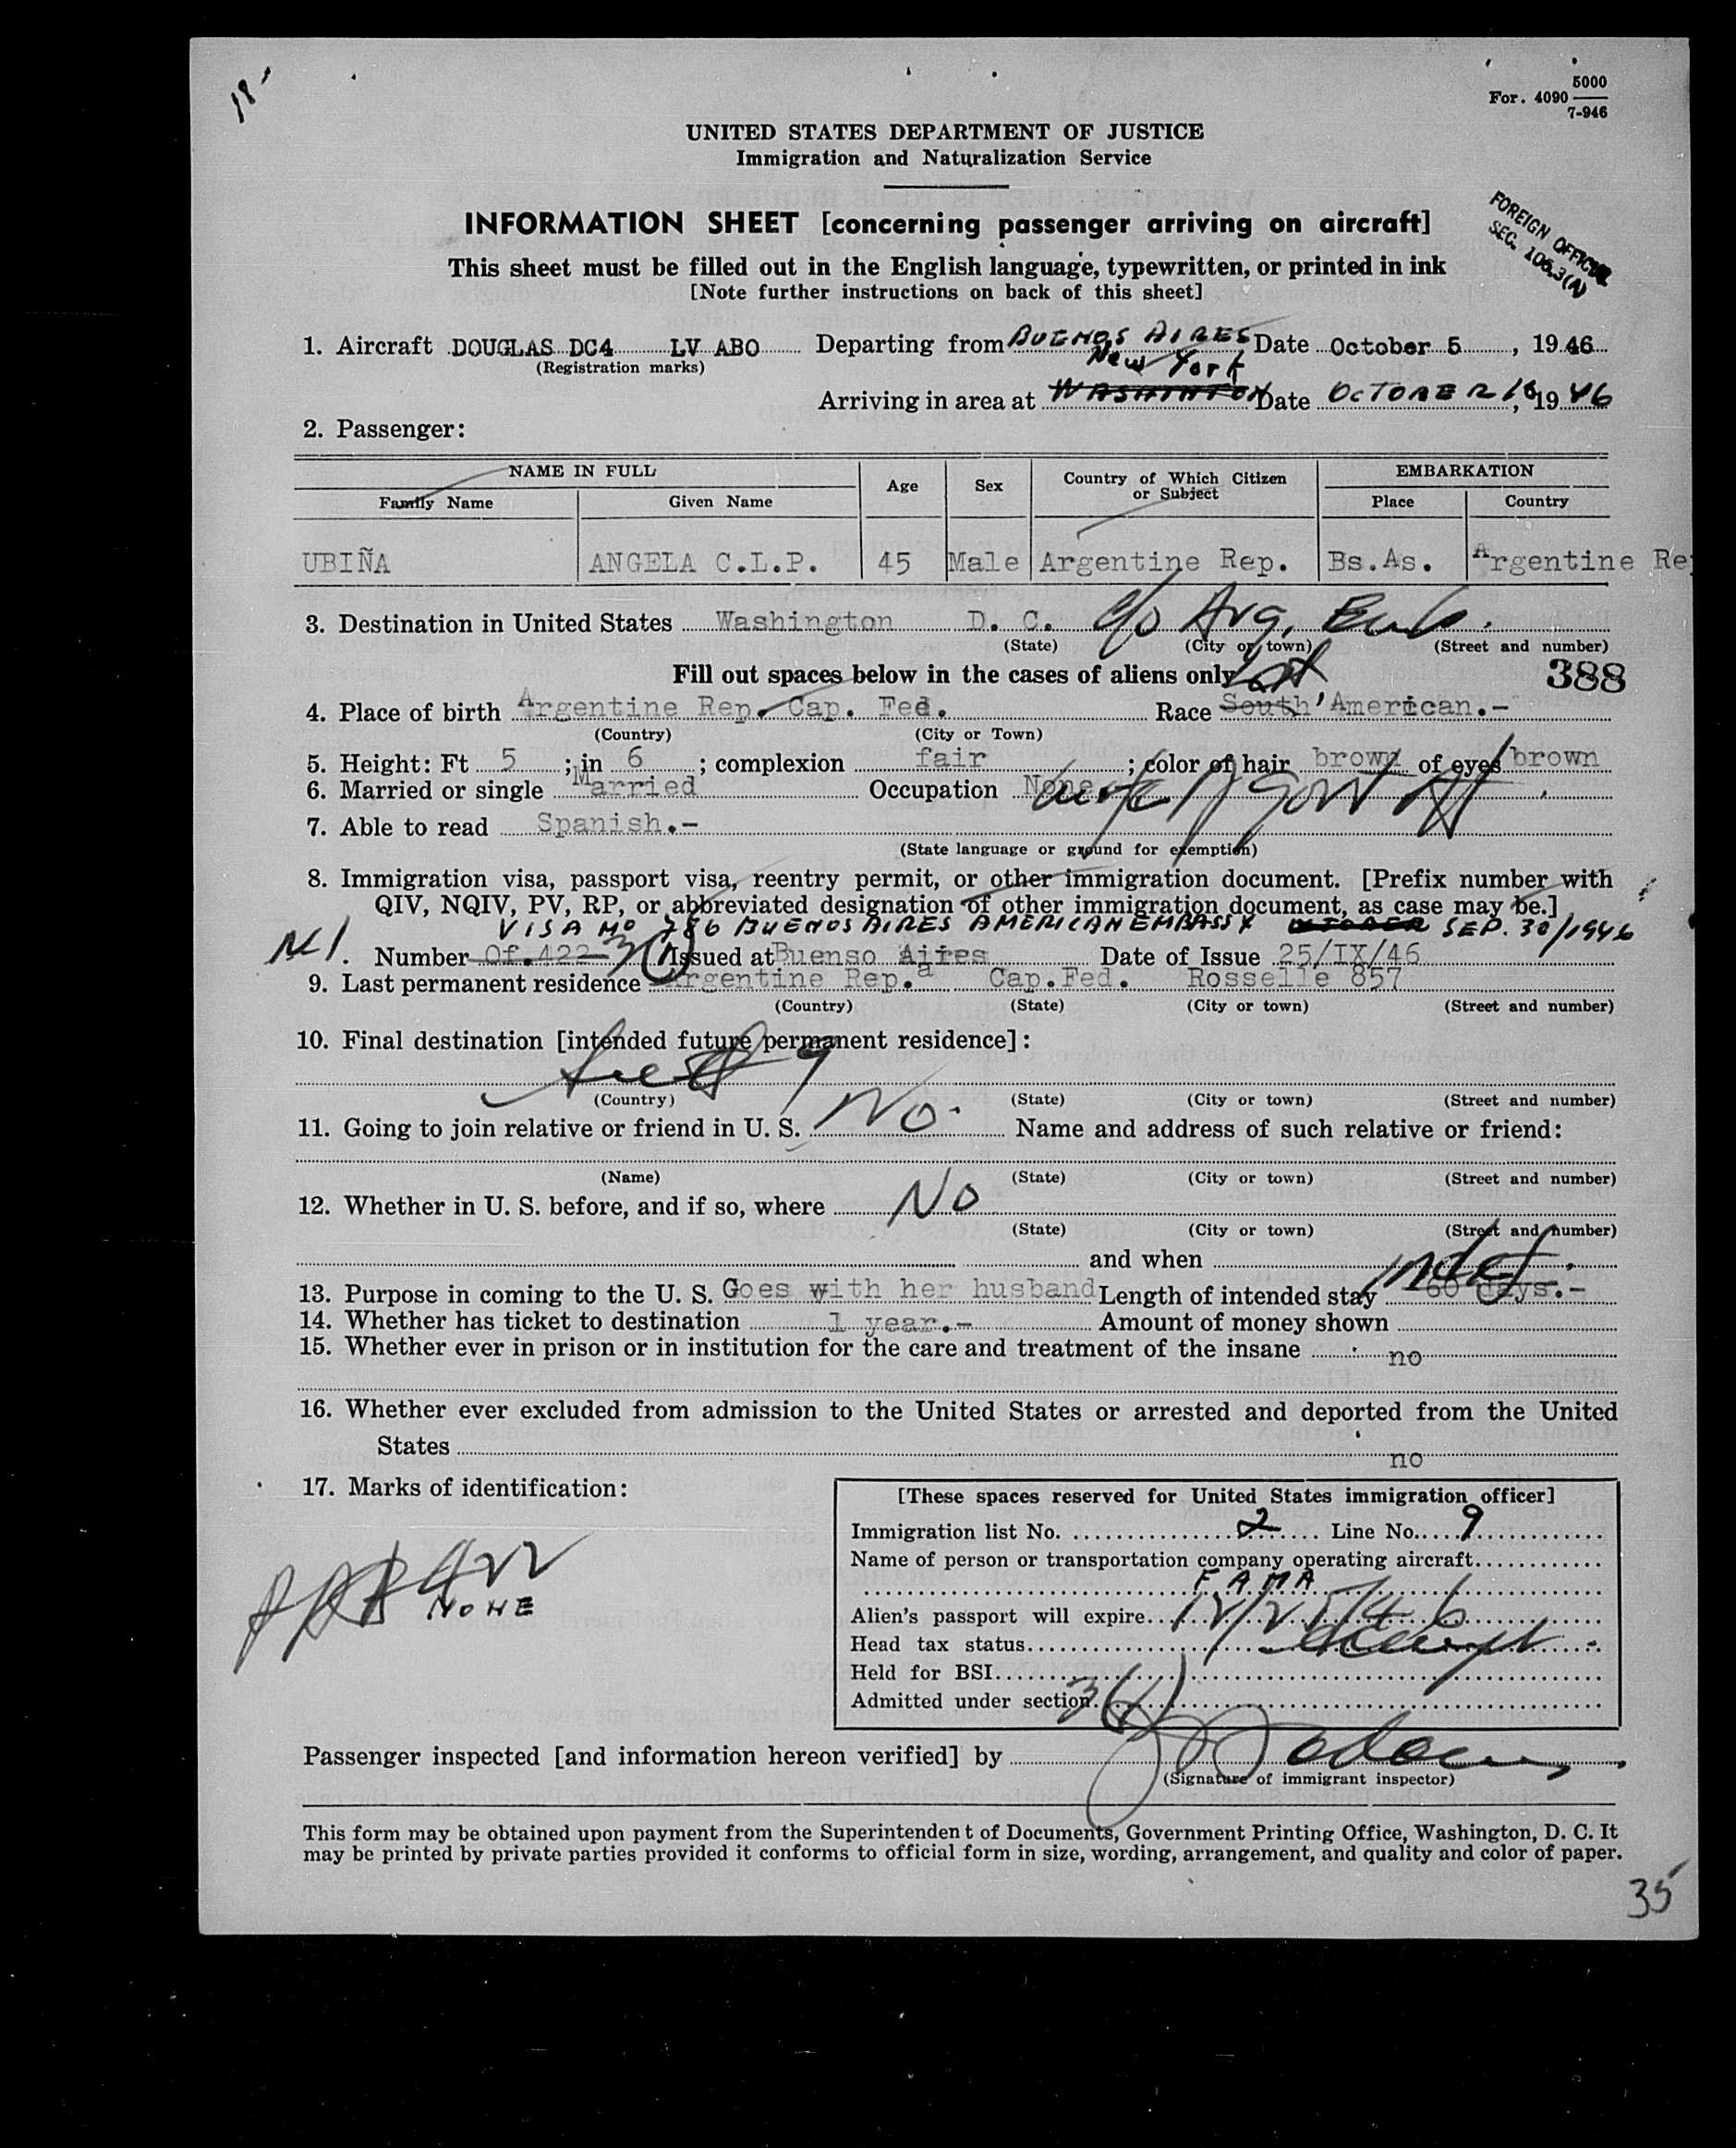 18-
5000
For. 4090
7-946
UNITED STATES DEPARTMENT OF JUSTICE
Immigration and Naturalization Service
INFORMATION SHEET [concerning passenger arriving on aircraft]
FOREIGN OFFICIAL
SEC. 106.3(A)
This sheet must be filled out in the English language, typewritten, or printed in ink
[Note further instructions on back of this sheet]
1. Aircraft DOUGLAS DC4 LV ABO Departing from BUENOS AIRES Date October 5, 1946
(Registration marks)
New York
Arriving in area at WASHINTON Date OCTOBER 16, 1946
2. Passenger:
NAME IN FULL Age Sex Country of Which Citizen or Subject EMBARKATION
Family Name Given Name Place Country
UBIÑA ANGELA C.L.P. 45 Male Argentine Rep. Bs.As. Argentine Rep
3. Destination in United States Washington D. C. c/o Arg. Emb.
(State) (City or town) (Street and number)
Fill out spaces below in the cases of aliens only 388
4. Place of birth Argentine Rep. Cap. Fed. Race South American.-
(Country) (City or Town)
5. Height: Ft 5 ; in 6 ; complexion fair ; color of hair brown of eyes brown
6. Married or single Married Occupation None wife Govt Off
7. Able to read Spanish.-
(State language or ground for exemption)
8. Immigration visa, passport visa, reentry permit, or other immigration document. [Prefix number with
QIV, NQIV, PV, RP, or abbreviated designation of other immigration document, as case may be.]
VISA No 786 BUENOS AIRES AMERICAN EMBASSY OCTOBER SEP. 30/1946
Number Of.422 3(1) Issued at Buenso Aires Date of Issue 25/IX/46
9. Last permanent residence Argentine Rep.a Cap.Fed. Rosselle 857
(Country) (State) (City or town) (Street and number)
10. Final destination [intended future permanent residence]:
See # 9
(Country) (State) (City or town) (Street and number)
11. Going to join relative or friend in U. S. No. Name and address of such relative or friend:
(Name) (State) (City or town) (Street and number)
12. Whether in U. S. before, and if so, where No
(State) (City or town) (Street and number)
and when
indef.
13. Purpose in coming to the U. S. Goes with her husband Length of intended stay 60 days.-
14. Whether has ticket to destination 1 year.- Amount of money shown
15. Whether ever in prison or in institution for the care and treatment of the insane no
16. Whether ever excluded from admission to the United States or arrested and deported from the United
States no
17. Marks of identification:
[These spaces reserved for United States immigration officer]
Immigration list No. 2 Line No. 9
Name of person or transportation company operating aircraft
FAMA
422
NONE
Alien's passport will expire 12/25/46
Head tax status exempt
Held for BSI
Admitted under section 3(1)
Passenger inspected [and information hereon verified] by
(Signature of immigrant inspector)
This form may be obtained upon payment from the Superintendent of Documents, Government Printing Office, Washington, D. C. It
may be printed by private parties provided it conforms to official form in size, wording, arrangement, and quality and color of paper.
35